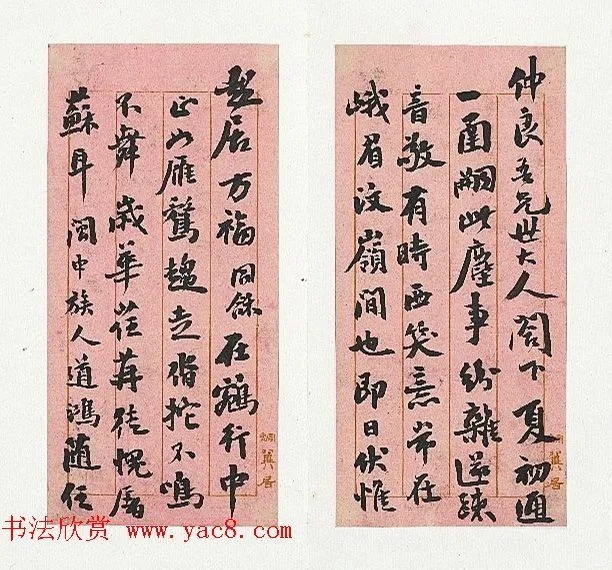 仲良吾兄世大人閣下夏初通
一函嗣此塵事紛雜遂疎
音敬有時西笑意常在
峨眉汶嶺間也即日伏惟
起居万福同龢在鵷行中
正如雁鶩趨走不鳴
不舞歲華荏苒徒愧屠
蘇耳閩中族人道鴻隨任
书法欣赏 www.yac8.com